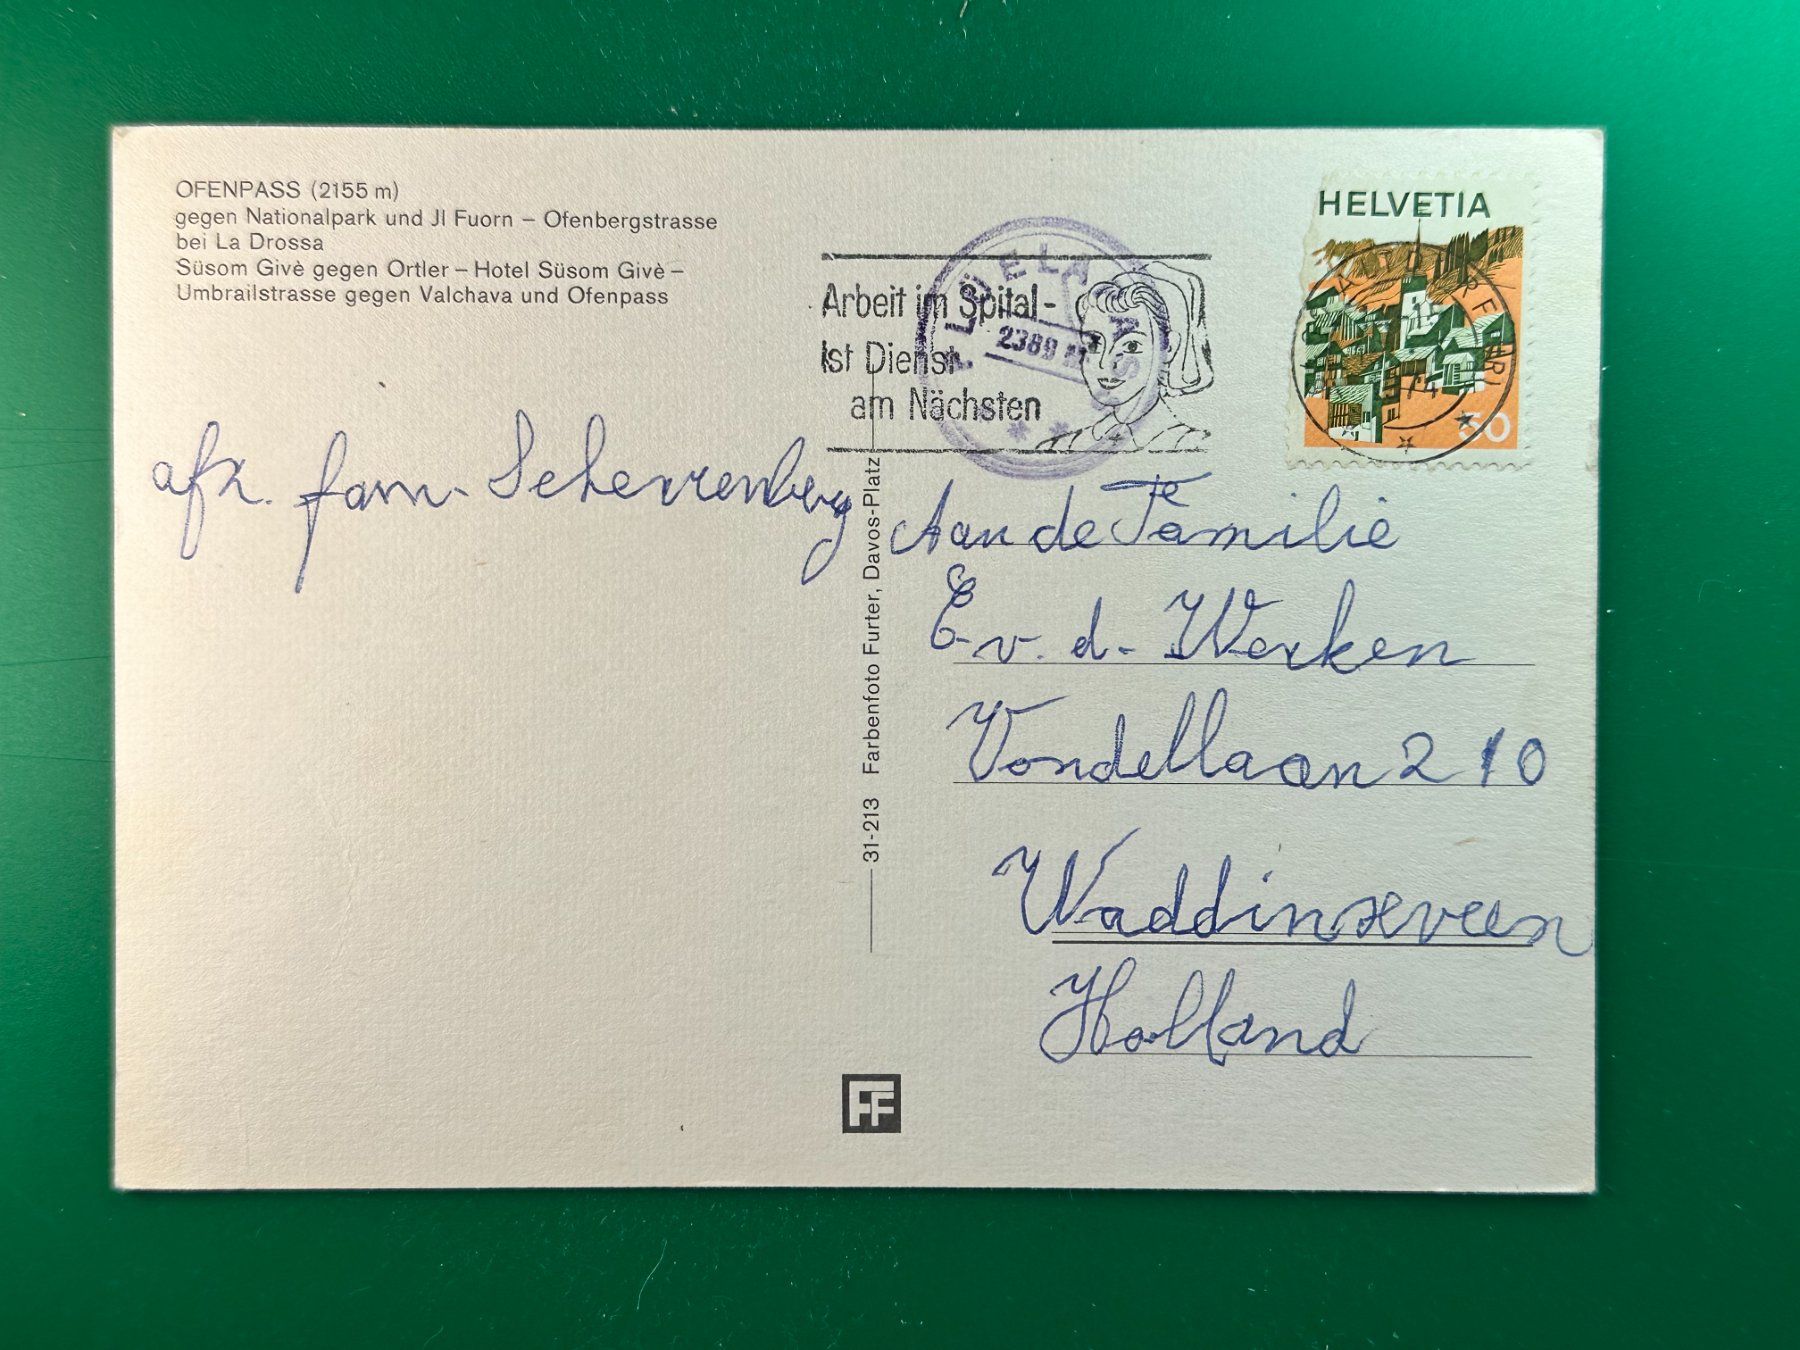 OFENPASS (2155 m)
gegen Nationalpark und Jl Fuorn – Ofenbergstrasse
bei La Drossa
Süsom Givè gegen Ortler – Hotel Süsom Givè –
Umbrailstrasse gegen Valchava und Ofenpass
HELVETIA
30
FLÜELA
2389 M
Arbeit im Spital-
Ist Dienst
am Nächsten
afz. fam. Scherrenberg
Aan de Familie
E. v. d. Werken
Vondellaan 210
Waddinxveen
Holland
31-213 Farbenfoto Furter, Davos-Platz
FF